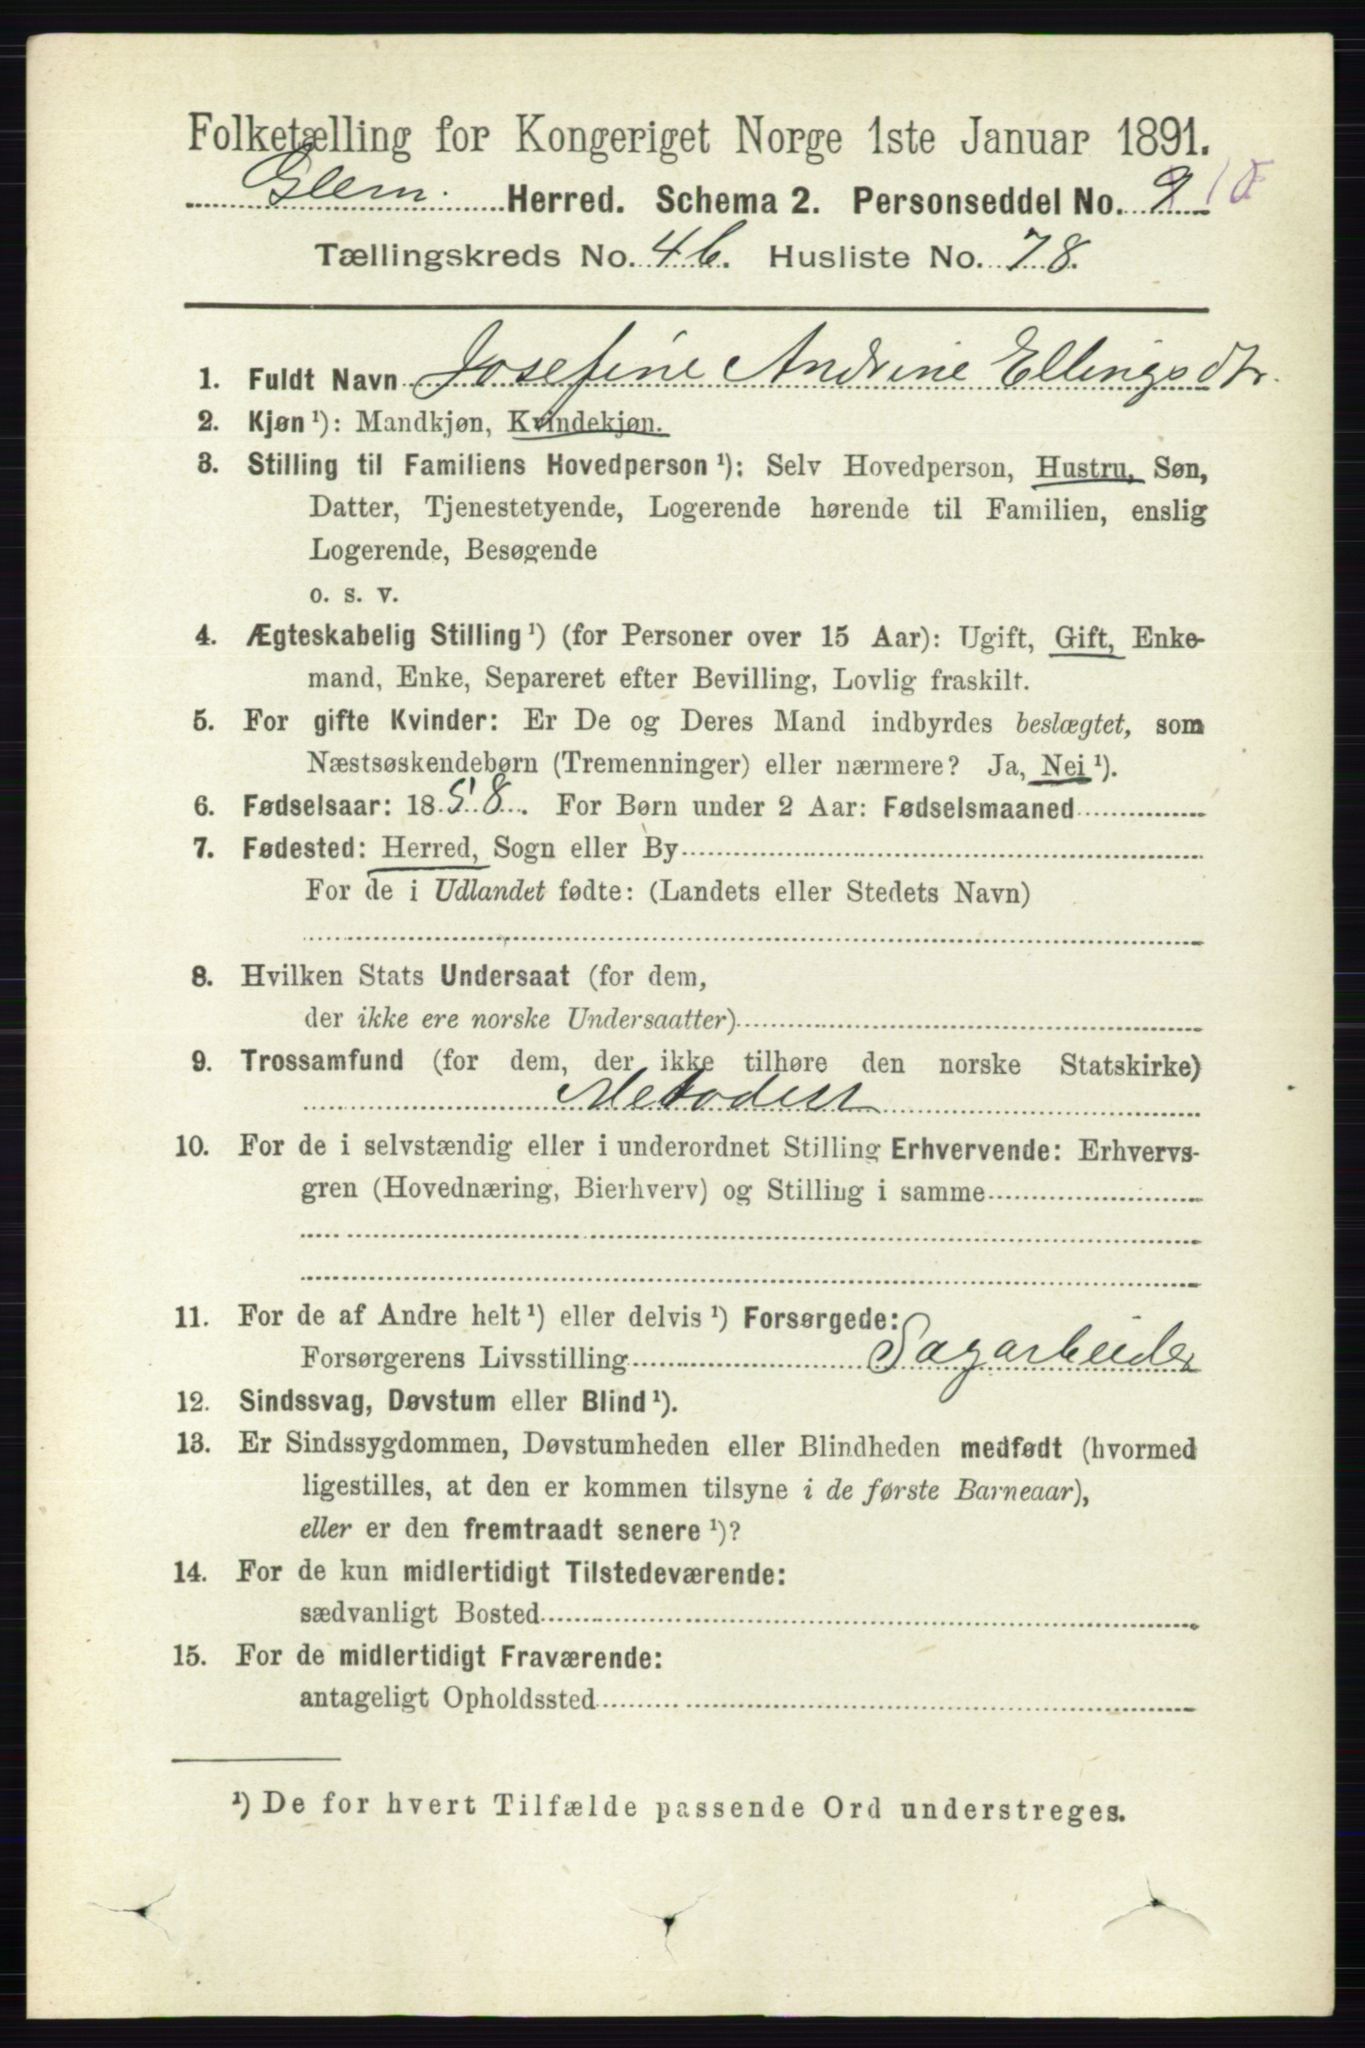 Folketælling for Kongeriget Norge 1ste Januar 1891.
Glem. Herred. Schema 2. Personseddel No. 9 10
Tællingskreds No. 4b. Husliste No. 78.
1. Fuldt Navn Josefine Andrine Ellingsdtr.
2. Kjøn ¹): Mandkjøn, Kvindekjøn.
3. Stilling til Familiens Hovedperson ¹): Selv Hovedperson, Hustru, Søn,
Datter, Tjenestetyende, Logerende hørende til Familien, enslig
Logerende, Besøgende
o. s. v.
4. Ægteskabelig Stilling ¹) (for Personer over 15 Aar): Ugift, Gift, Enke-
mand, Enke, Separeret efter Bevilling, Lovlig fraskilt.
5. For gifte Kvinder: Er De og Deres Mand indbyrdes beslægtet, som
Næstsøskendebørn (Tremenninger) eller nærmere? Ja, Nei ¹).
6. Fødselsaar: 1858. For Børn under 2 Aar: Fødselsmaaned
7. Fødested: Herred, Sogn eller By
For de i Udlandet fødte: (Landets eller Stedets Navn)
8. Hvilken Stats Undersaat (for dem,
der ikke ere norske Undersaatter)
9. Trossamfund (for dem, der ikke tilhøre den norske Statskirke)
Metodist
10. For de i selvstændig eller i underordnet Stilling Erhvervende: Erhvervs-
gren (Hovednæring, Bierhverv) og Stilling i samme
11. For de af Andre helt ¹) eller delvis ¹) Forsørgede:
Forsørgerens Livsstilling Sagarbeider
12. Sindssvag, Døvstum eller Blind ¹).
13. Er Sindssygdommen, Døvstumheden eller Blindheden medfødt (hvormed
ligestilles, at den er kommen tilsyne i de første Barneaar),
eller er den fremtraadt senere ¹)?
14. For de kun midlertidigt Tilstedeværende:
sædvanligt Bosted
15. For de midlertidigt Fraværende:
antageligt Opholdssted
¹) De for hvert Tilfælde passende Ord understreges.